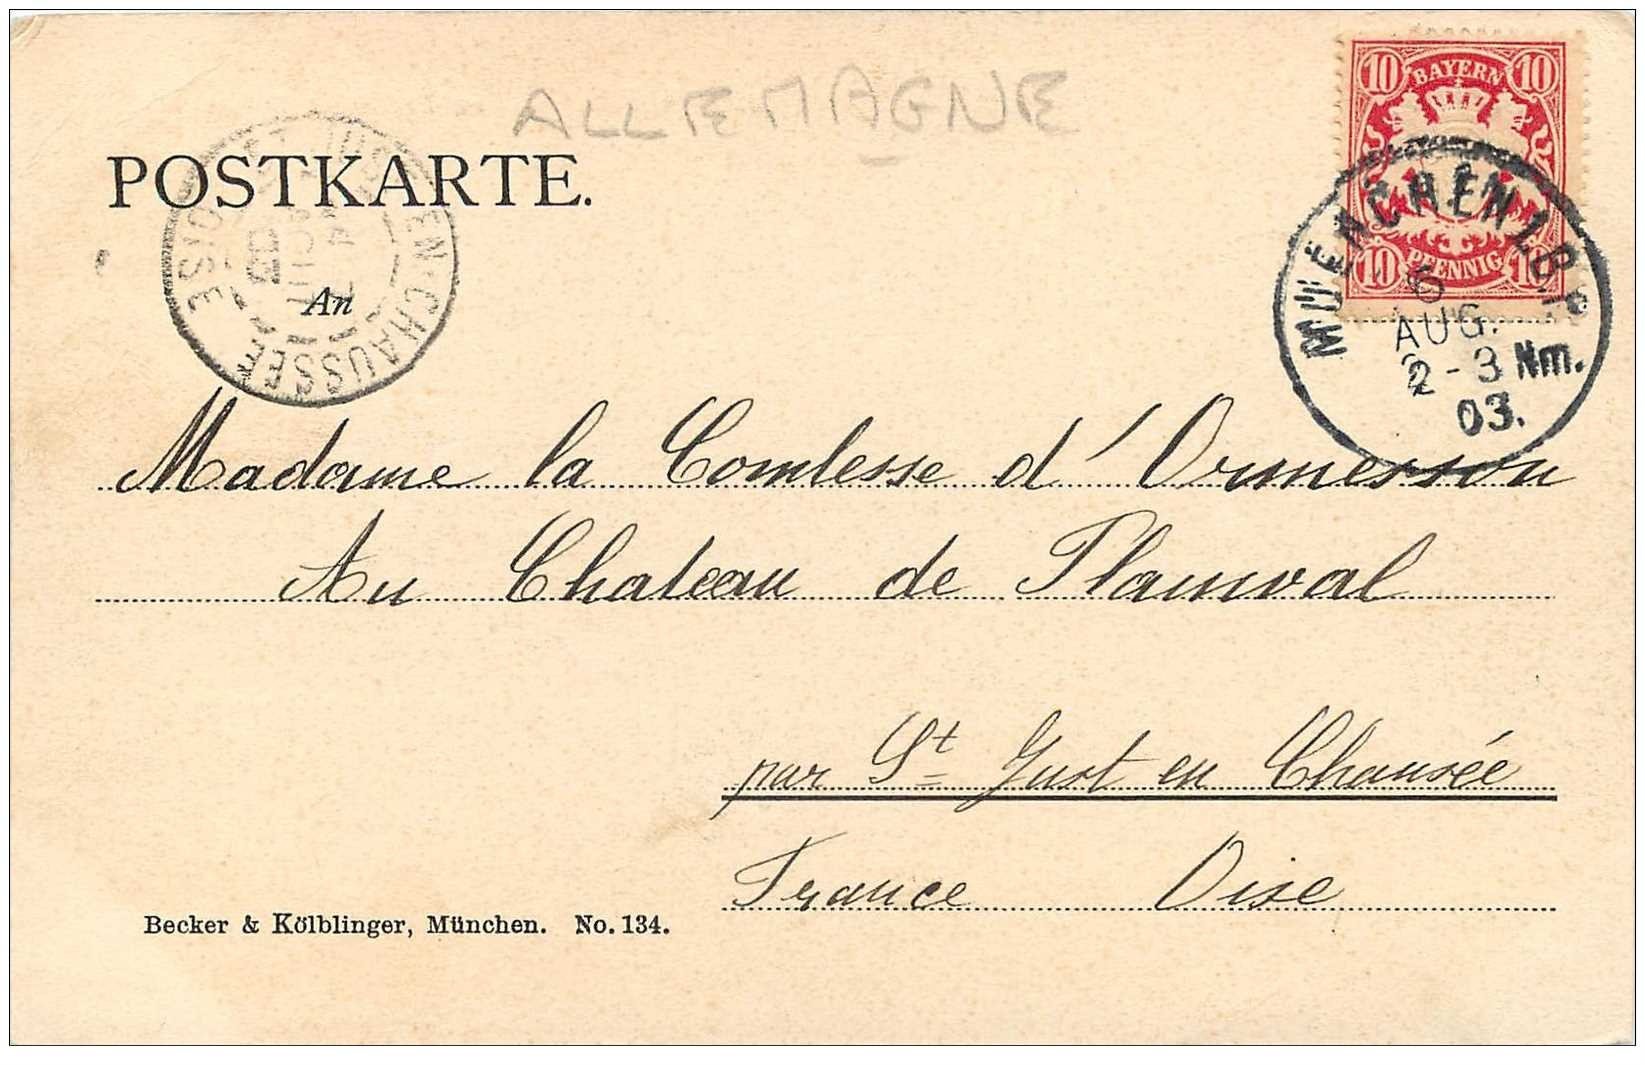 ALLEMAGNE
10 BAYERN 10
10 PFENNIG 10
POSTKARTE.
MUENCHEN 2.B.P.
6
AUG.
2-3 Nm.
03.
ST JUST-EN-CHAUSSEE
AOUT
03
OISE
An
Madame la Comtesse d'Ormesson
Au Chateau de Plainval
par St Just en Chausée
France Oise
Becker & Kölblinger, München. No. 134.